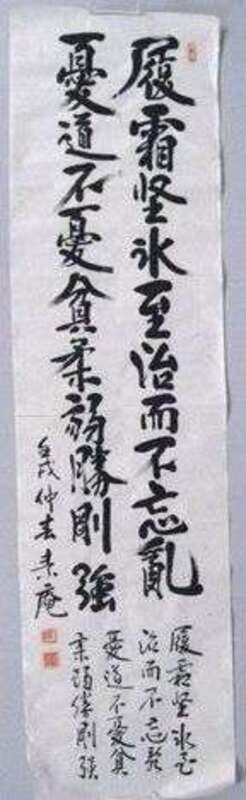 履霜坚冰至治而不忘亂
憂道不憂貧柔弱勝剛強
壬戌仲春素庵
履霜坚冰至
治而不忘亂
憂道不憂貧
柔弱勝剛強